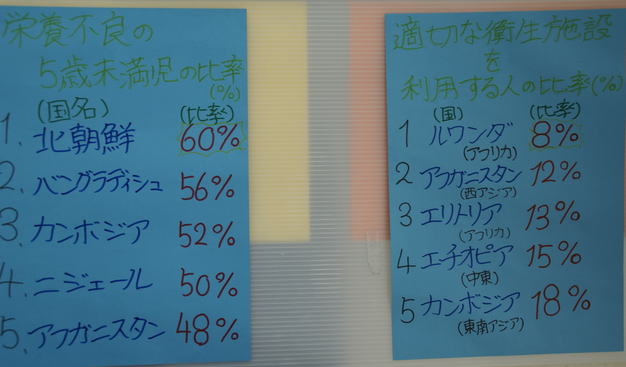 栄養不良の
5歳未満児の比率
(%)
(国名) (比率)
1. 北朝鮮 60%
2. バングラディシュ 56%
3. カンボジア 52%
4. ニジェール 50%
5. アフガニスタン 48%
適切な衛生施設
を
利用する人の比率(%)
(国) (比率)
1 ルワンダ 8%
(アフリカ)
2 アフガニスタン 12%
(西アジア)
3 エリトリア 13%
(アフリカ)
4 エチオピア 15%
(中東)
5 カンボジア 18%
(東南アジア)